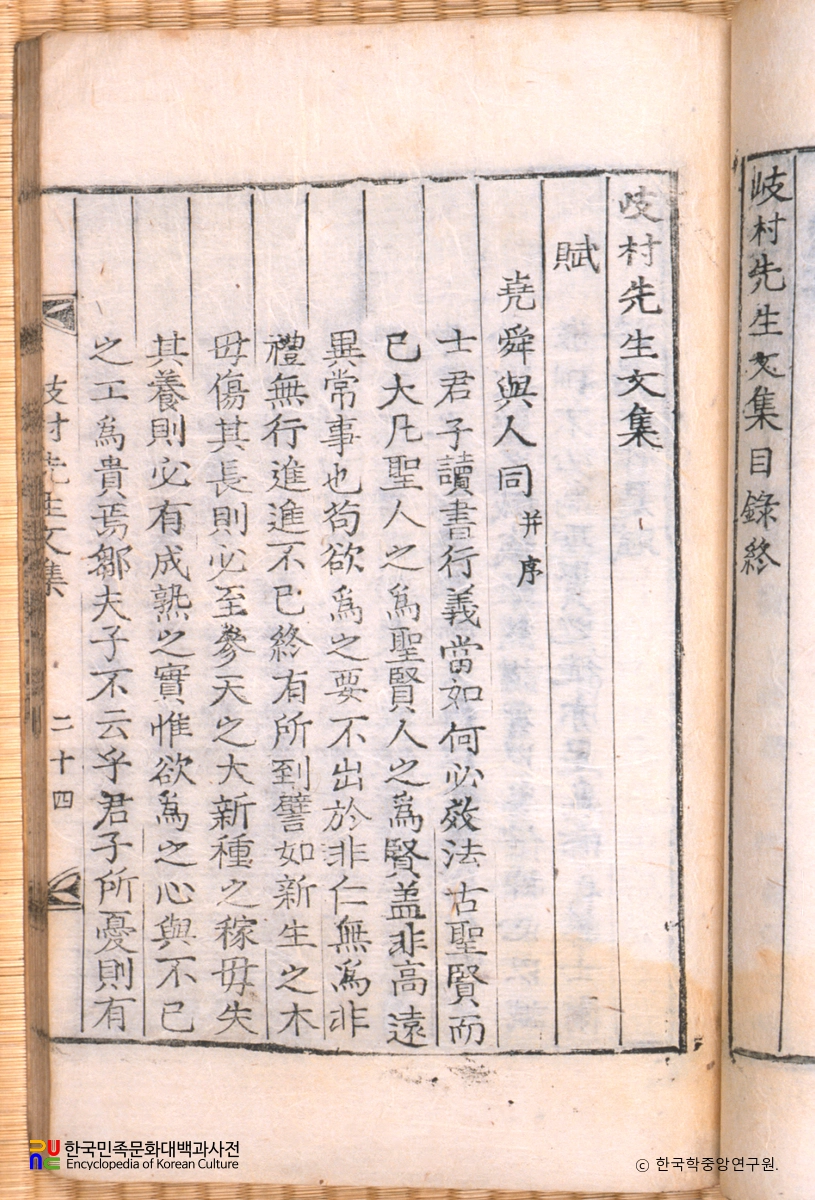 岐村先生文集目錄終
岐村先生文集
賦
堯舜與人同 并序
士君子讀書行義當如何必效法古聖賢而
已大凡聖人之為聖賢人之為賢盖非高遠
異常事也苟欲為之要不出於非仁無為非
禮無行進進不已終有所到譬如新生之木
毋傷其長則必至參天之大新種之稼毋失
其養則必有成熟之實惟欲為之心與不已
之工為貴焉鄒夫子不云乎君子所憂則有
岐村先生文集 二十四
한국민족문화대백과사전
Encyclopedia of Korean Culture
© 한국학중앙연구원.